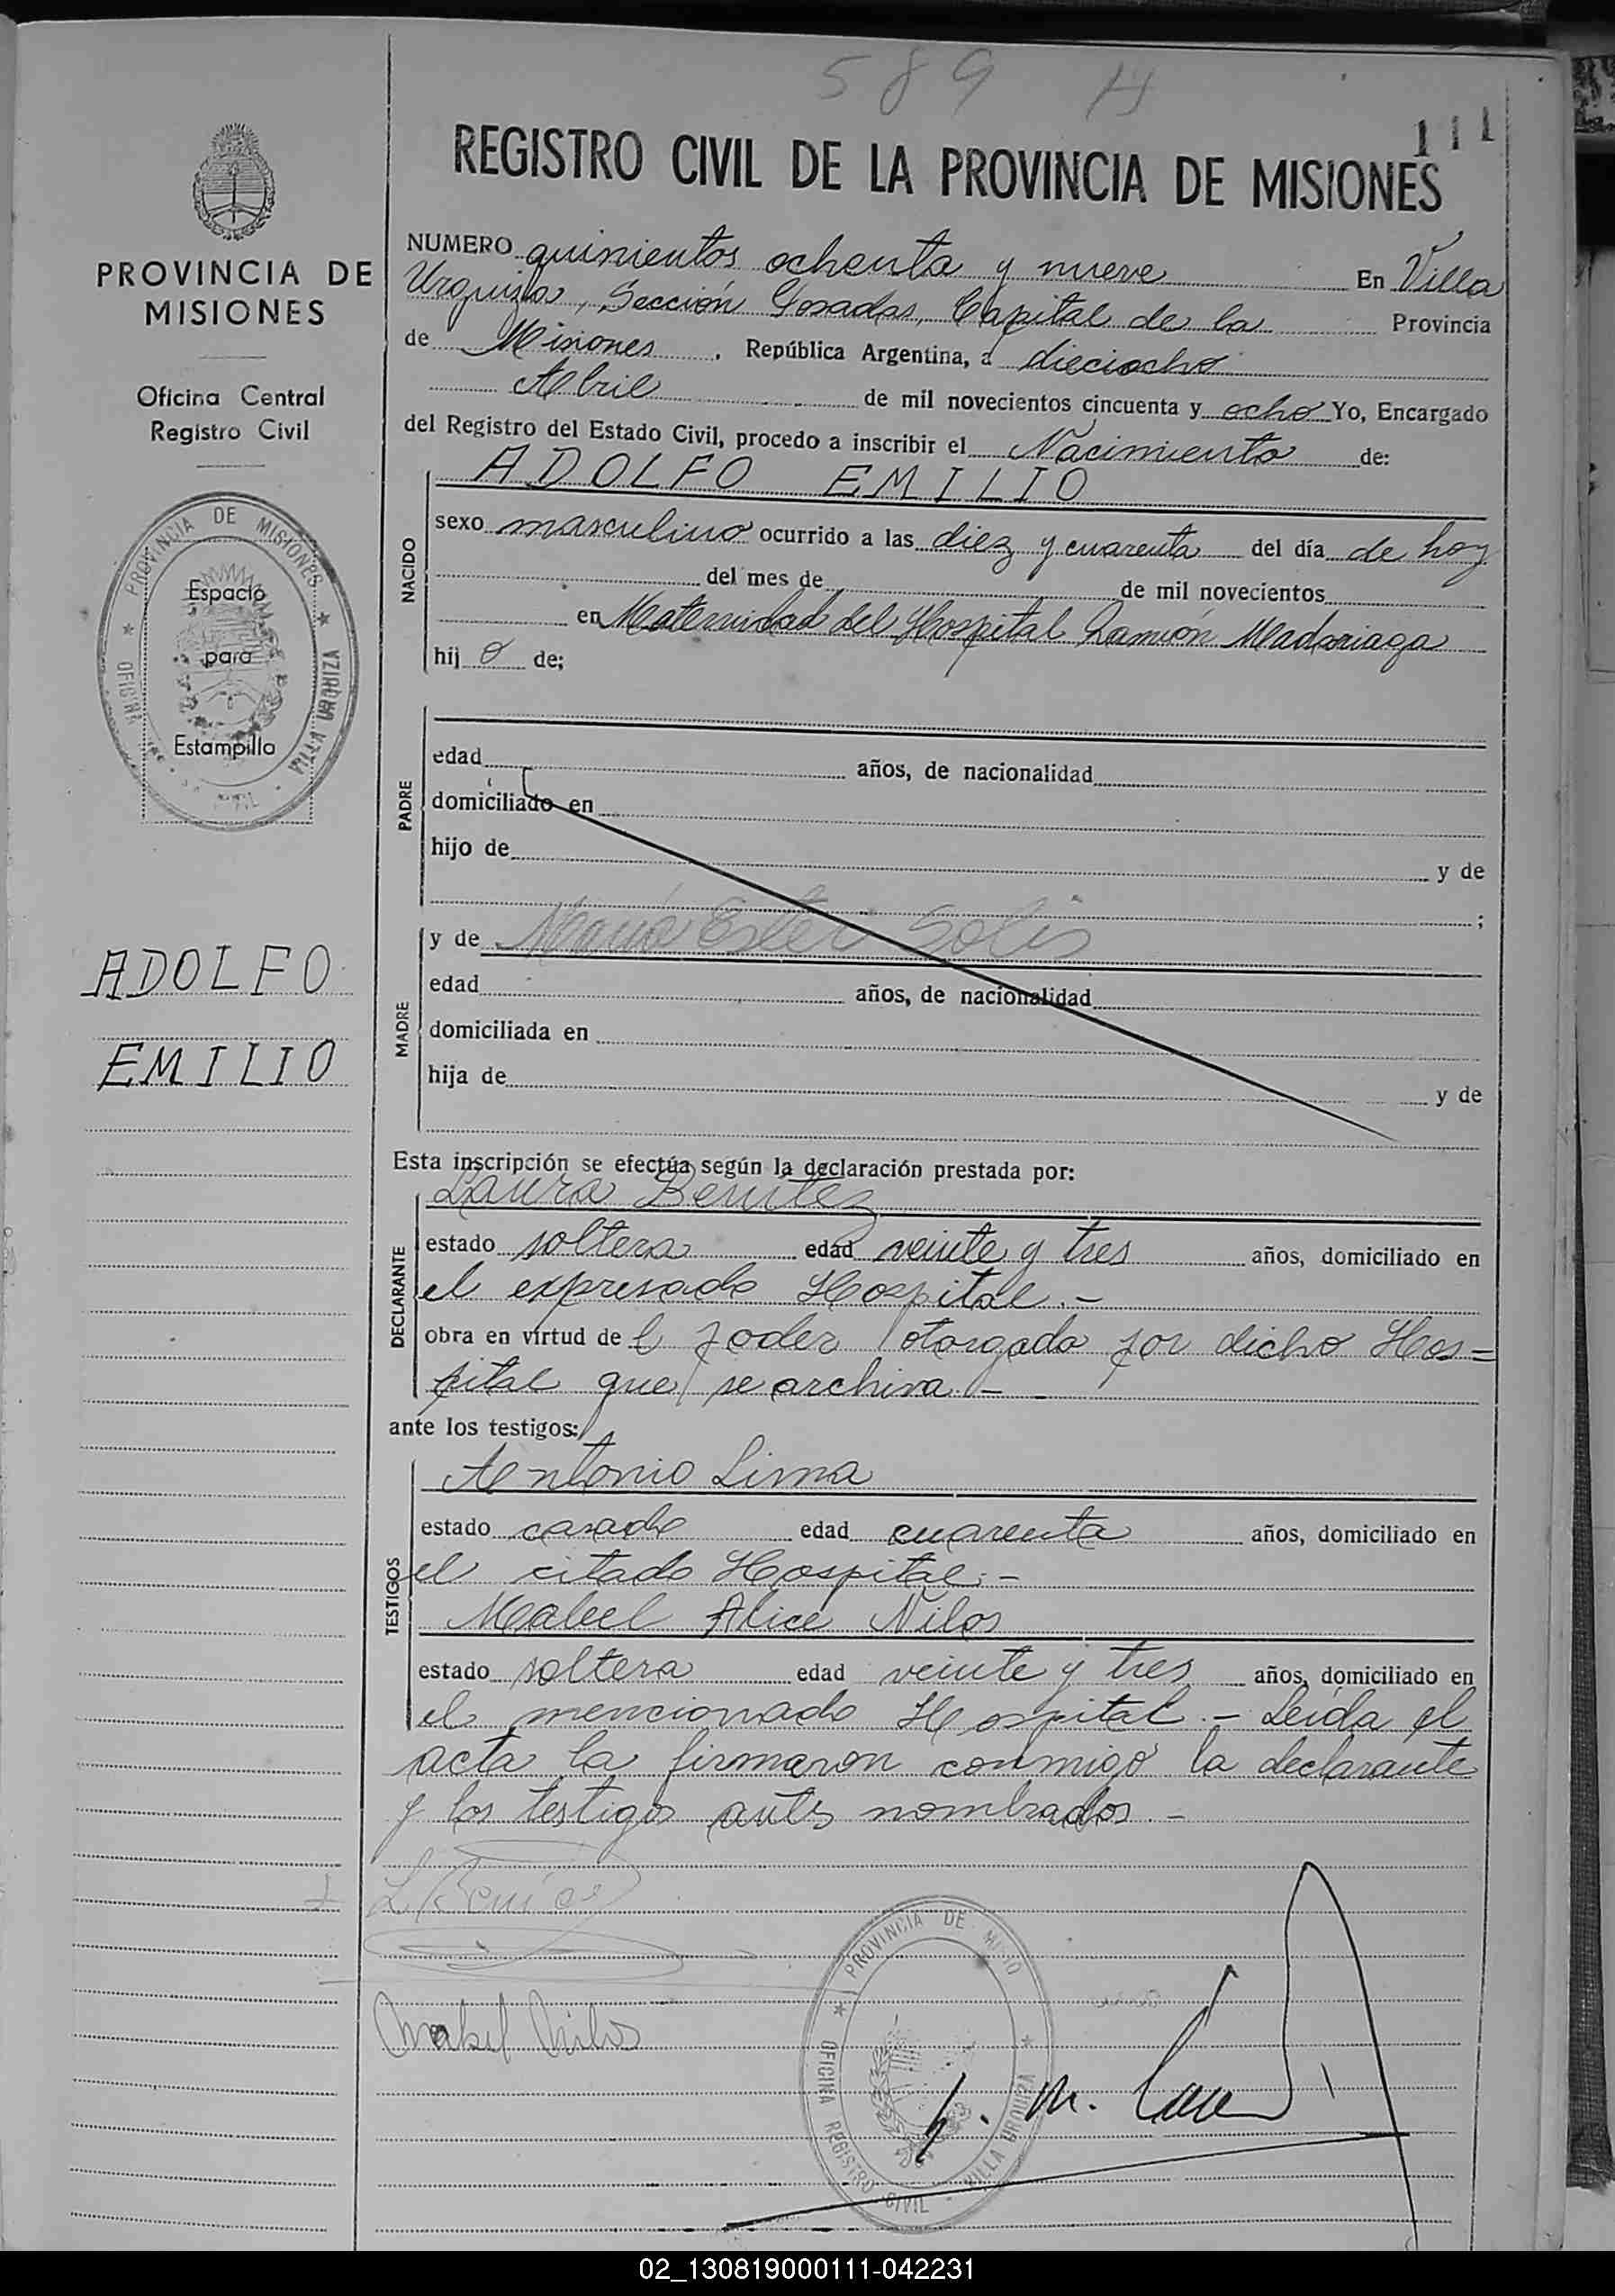 589 H
111
REGISTRO CIVIL DE LA PROVINCIA DE MISIONES
PROVINCIA DE
MISIONES
Oficina Central
Registro Civil
PROVINCIA DE MISIONES
OFICINA
VILLA URQUIZA
Espacio
para
Estampilla
ADOLFO
EMILIO
NUMERO quinientos ochenta y nueve En Villa
Urquiza, Sección Posadas, Capital de la Provincia
de Misiones, República Argentina, a dieciocho
Abril de mil novecientos cincuenta y ocho Yo, Encargado
del Registro del Estado Civil, procedo a inscribir el Nacimiento de:
ADOLFO EMILIO
NACIDO
sexo masculino ocurrido a las diez y cuarenta del día de hoy
del mes de de mil novecientos
en Maternidad del Hospital Ramón Madariaga
hij o de;
PADRE
edad años, de nacionalidad
domiciliado en
hijo de y de
;
MADRE
y de María Ester Solis
edad años, de nacionalidad
domiciliada en
hija de y de
Esta inscripción se efectúa según la declaración prestada por:
DECLARANTE
Laura Benitez
estado soltera edad veinte y tres años, domiciliado en
el expresado Hospital.-
obra en virtud de l poder otorgado por dicho Hos=
pital que se archiva.-
ante los testigos:
TESTIGOS
Antonio Lima
estado casado edad cuarenta años, domiciliado en
el citado Hospital.-
Mabel Alice Nilos
estado soltera edad veinte y tres años, domiciliado en
el mencionado Hospital.- Leida el
acta la firmaron conmigo la declarante
y los testigos antes nombrados.-
PROVINCIA DE MISIO
OFICINA REGISTRO CIVIL - VILLA URQUIZA
02_130819000111-042231